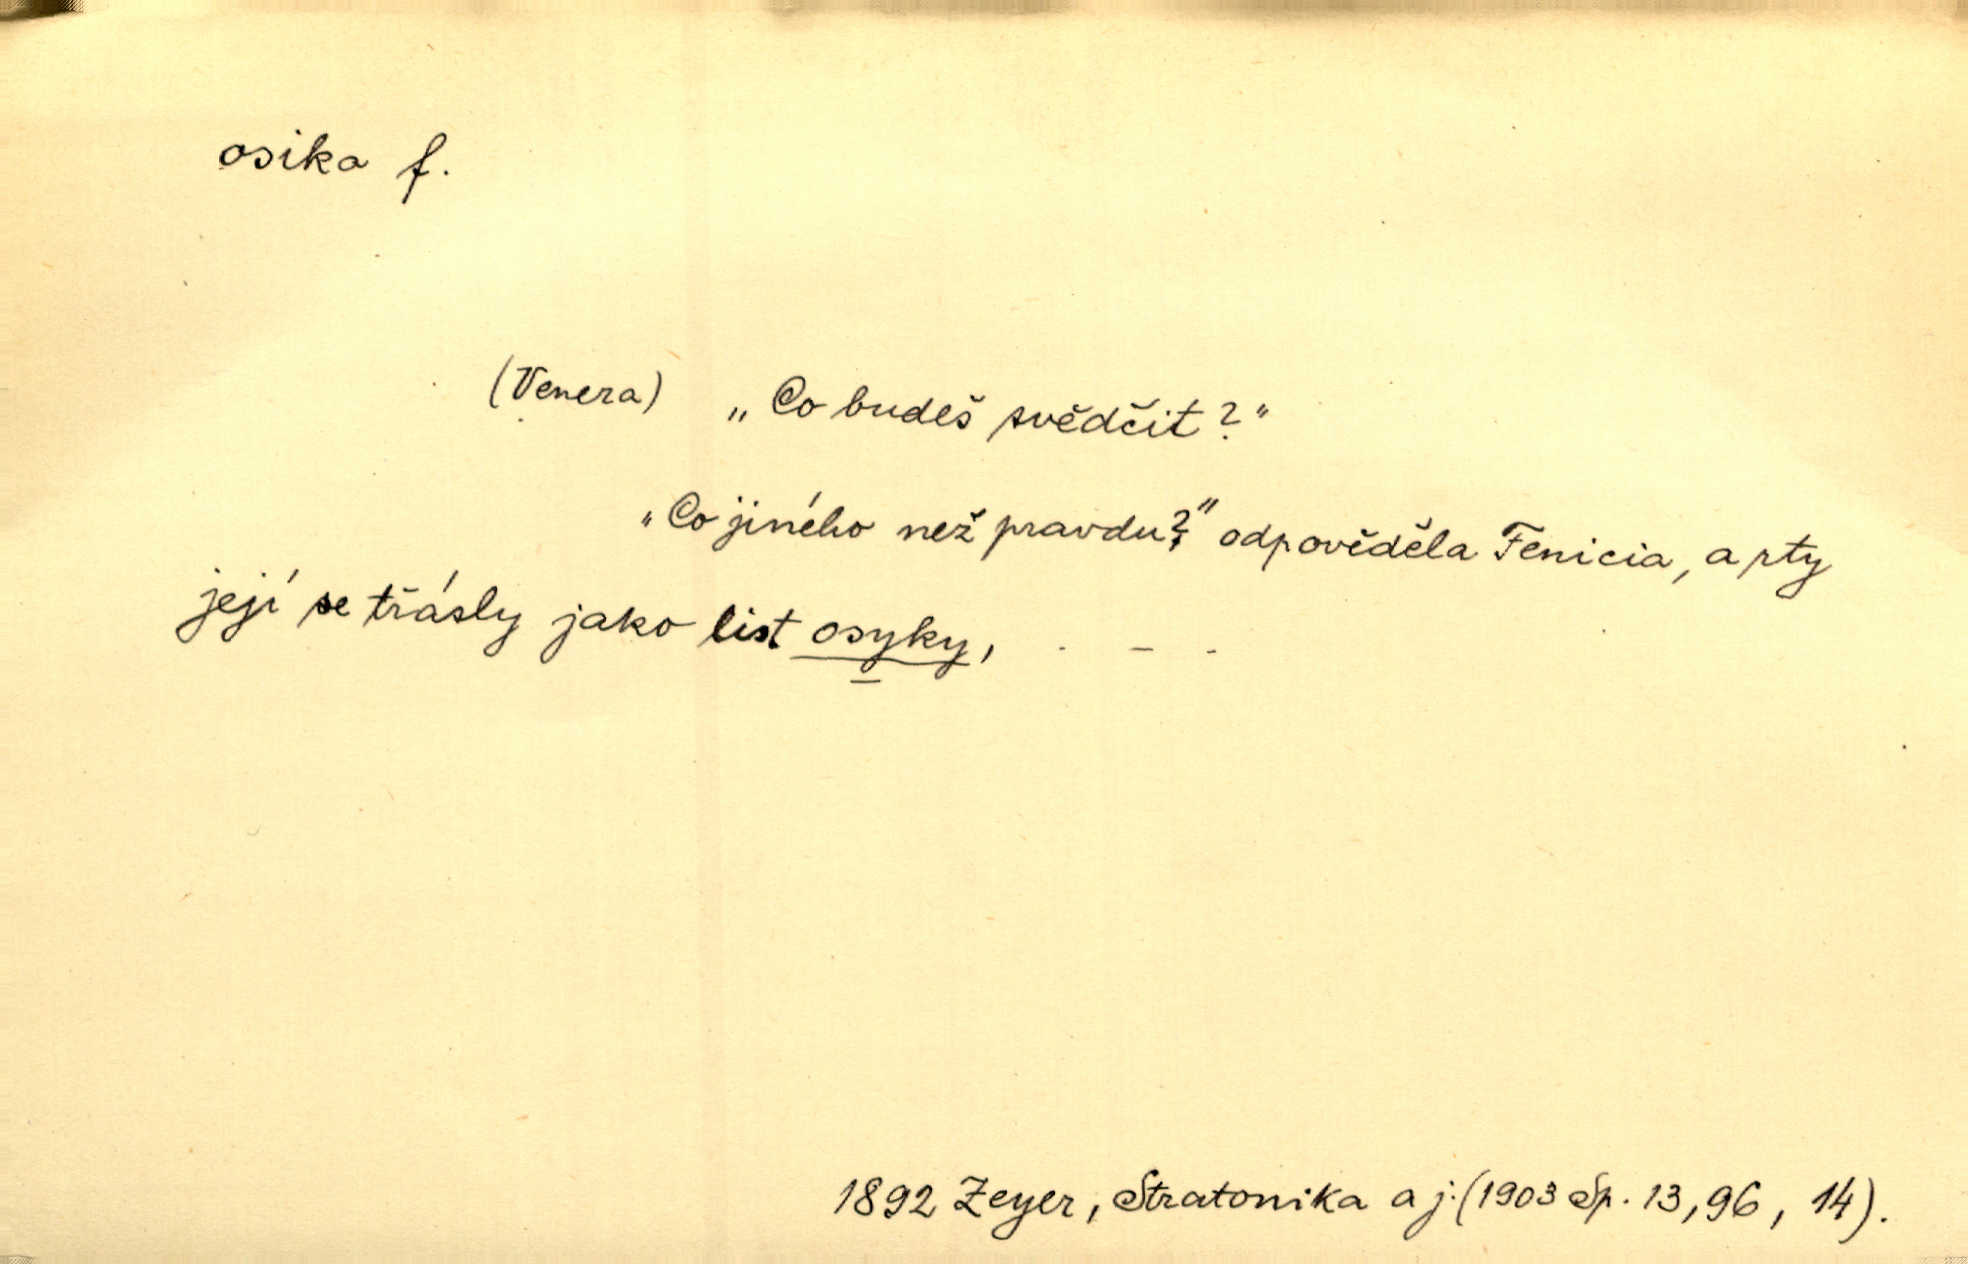 osika f.
(Venera) „Co budeš svědčit?"
„Co jiného než pravdu?" odpověděla Fenicia, a rty
její se třásly jako list osyky, . - .
1892 Zeyer, Stratonika a j. (1903 Sp. 13, 96, 14).